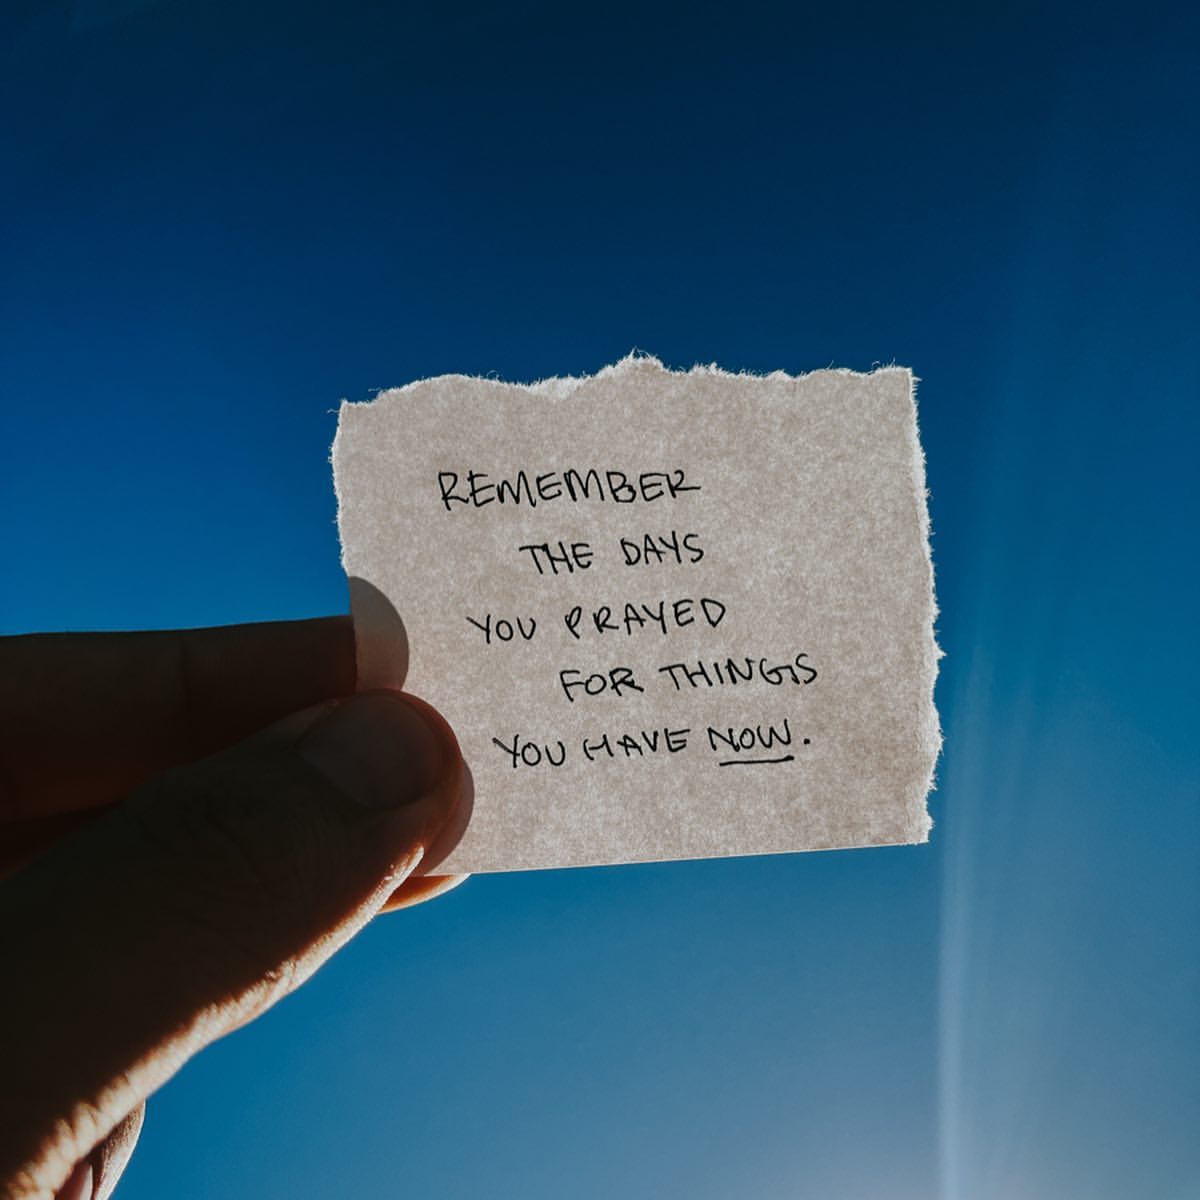 REMEMBER
THE DAYS
YOU PRAYED
FOR THINGS
YOU HAVE NOW.